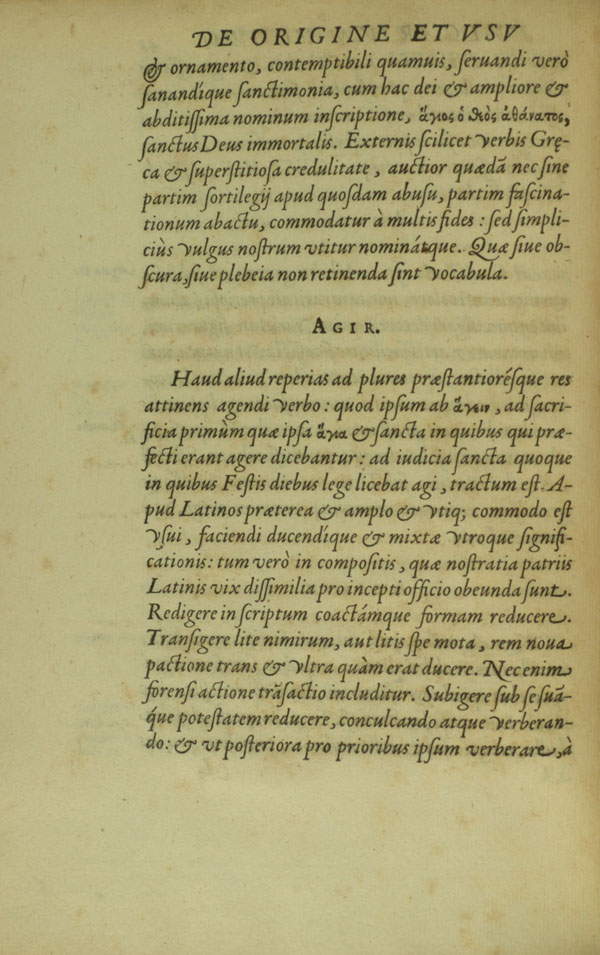 DE ORIGINE ET VSV
& ornamento, contemptibili quamuis, ſeruandi verò
ſanandíque ſanctimonia, cum hac dei & ampliore &
abditiſſima nominum inſcriptione, ἅγιος ὁ θεὸς ἀθάνατος,
ſanctus Deus immortalis. Externis ſcilicet verbis Gręca
ca & ſuperſtitioſa credulitate, auctior quædā nec ſine
partim ſortilegij apud quoſdam abuſu, partim faſcina-
tionum abactu, commodatur à multis fides: ſed ſimpli-
ciùs vulgus noſtrum vtitur nominátque. Quæ ſiue ob-
ſcura, ſiue plebeia non retinenda ſint vocabula.
AGIR.
Haud aliud reperias ad plures præſtantiorésque res
attinens agendi verbo: quod ipſum ab ἄγειν, ad ſacri-
ficia primùm quæ ipſa ἅγια & ſancta in quibus qui præ-
fecti erant agere dicebantur: ad iudicia ſancta quoque
in quibus Feſtis diebus lege licebat agi, tractum eſt. A-
pud Latinos præterea & amplo & vtiq; commodo eſt
vſui, faciendi ducendíque & mixtæ vtroque ſignifi-
cationis: tum verò in compoſitis, quæ noſtratia patriis
Latinis vix diſſimilia pro incepti officio obeunda ſunt.
Redigere in ſcriptum coactámque formam reducere.
Tranſigere lite nimirum, aut litis ſpe mota, rem noua
pactione trans & vltra quàm erat ducere. Nec enim
forenſi actione trāſactio includitur. Subigere ſub ſe ſuā-
q́ue poteſtatem reducere, conculcando atque verberan-
do: & vt poſteriora pro prioribus ipſum verberare, à